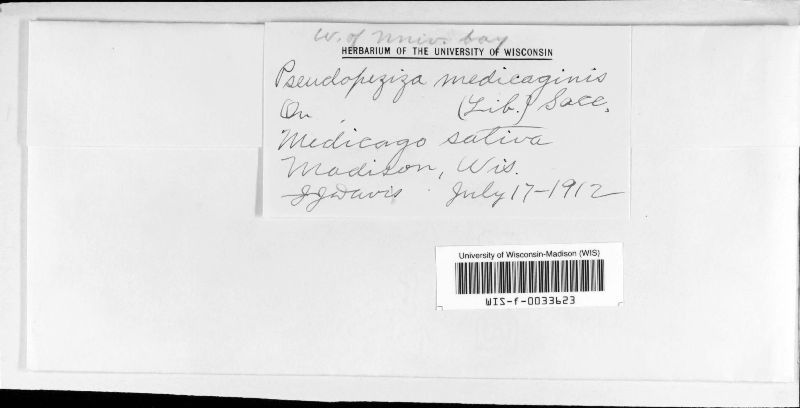 W. of Univ. bay
HERBARIUM OF THE UNIVERSITY OF WISCONSIN
Pseudopeziza medicaginis
On (Lib.) Sacc.
Medicago sativa
Madison, Wis.
JJDavis July 17-1912
University of Wisconsin-Madison (WIS)
WIS-f-0033623